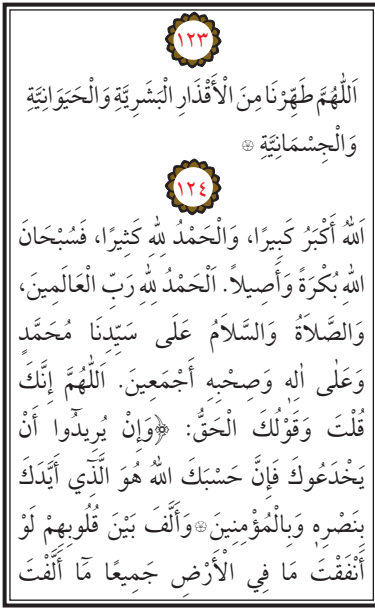 ١٢٣
اَللّٰهُمَّ طَهِّرْنَا مِنَ الْأَقْذَارِ الْبَشَرِيَّةِ وَالْحَيَوَانِيَّةِ
وَالْجِسْمَانِيَّةِ ۞
١٢٤
اَللّٰهُ أَكْبَرُ كَبِيرًا، وَالْحَمْدُ لِلّٰهِ كَثِيرًا، فَسُبْحَانَ
اللّٰهِ بُكْرَةً وَأَصِيلاً. اَلْحَمْدُ لِلّٰهِ رَبِّ الْعَالَمِينَ،
وَالصَّلَاةُ وَالسَّلَامُ عَلَى سَيِّدِنَا مُحَمَّدٍ
وَعَلٰى اٰلِهِ وَصَحْبِهِ أَجْمَعِينَ. اَللّٰهُمَّ إِنَّكَ
قُلْتَ وَقَوْلُكَ الْحَقُّ: ﴿وَإِنْ يُرِيدُٓوا أَنْ
يَخْدَعُوكَ فَإِنَّ حَسْبَكَ اللّٰهُ هُوَ الَّذِٓي أَيَّدَكَ
بِنَصْرِهِ وَبِالْمُؤْمِنِينَ ۞ وَأَلَّفَ بَيْنَ قُلُوبِهِمْ لَوْ
أَنْفَقْتَ مَا فِي الْأَرْضِ جَمِيعًا مَٓا أَلَّفْتَ